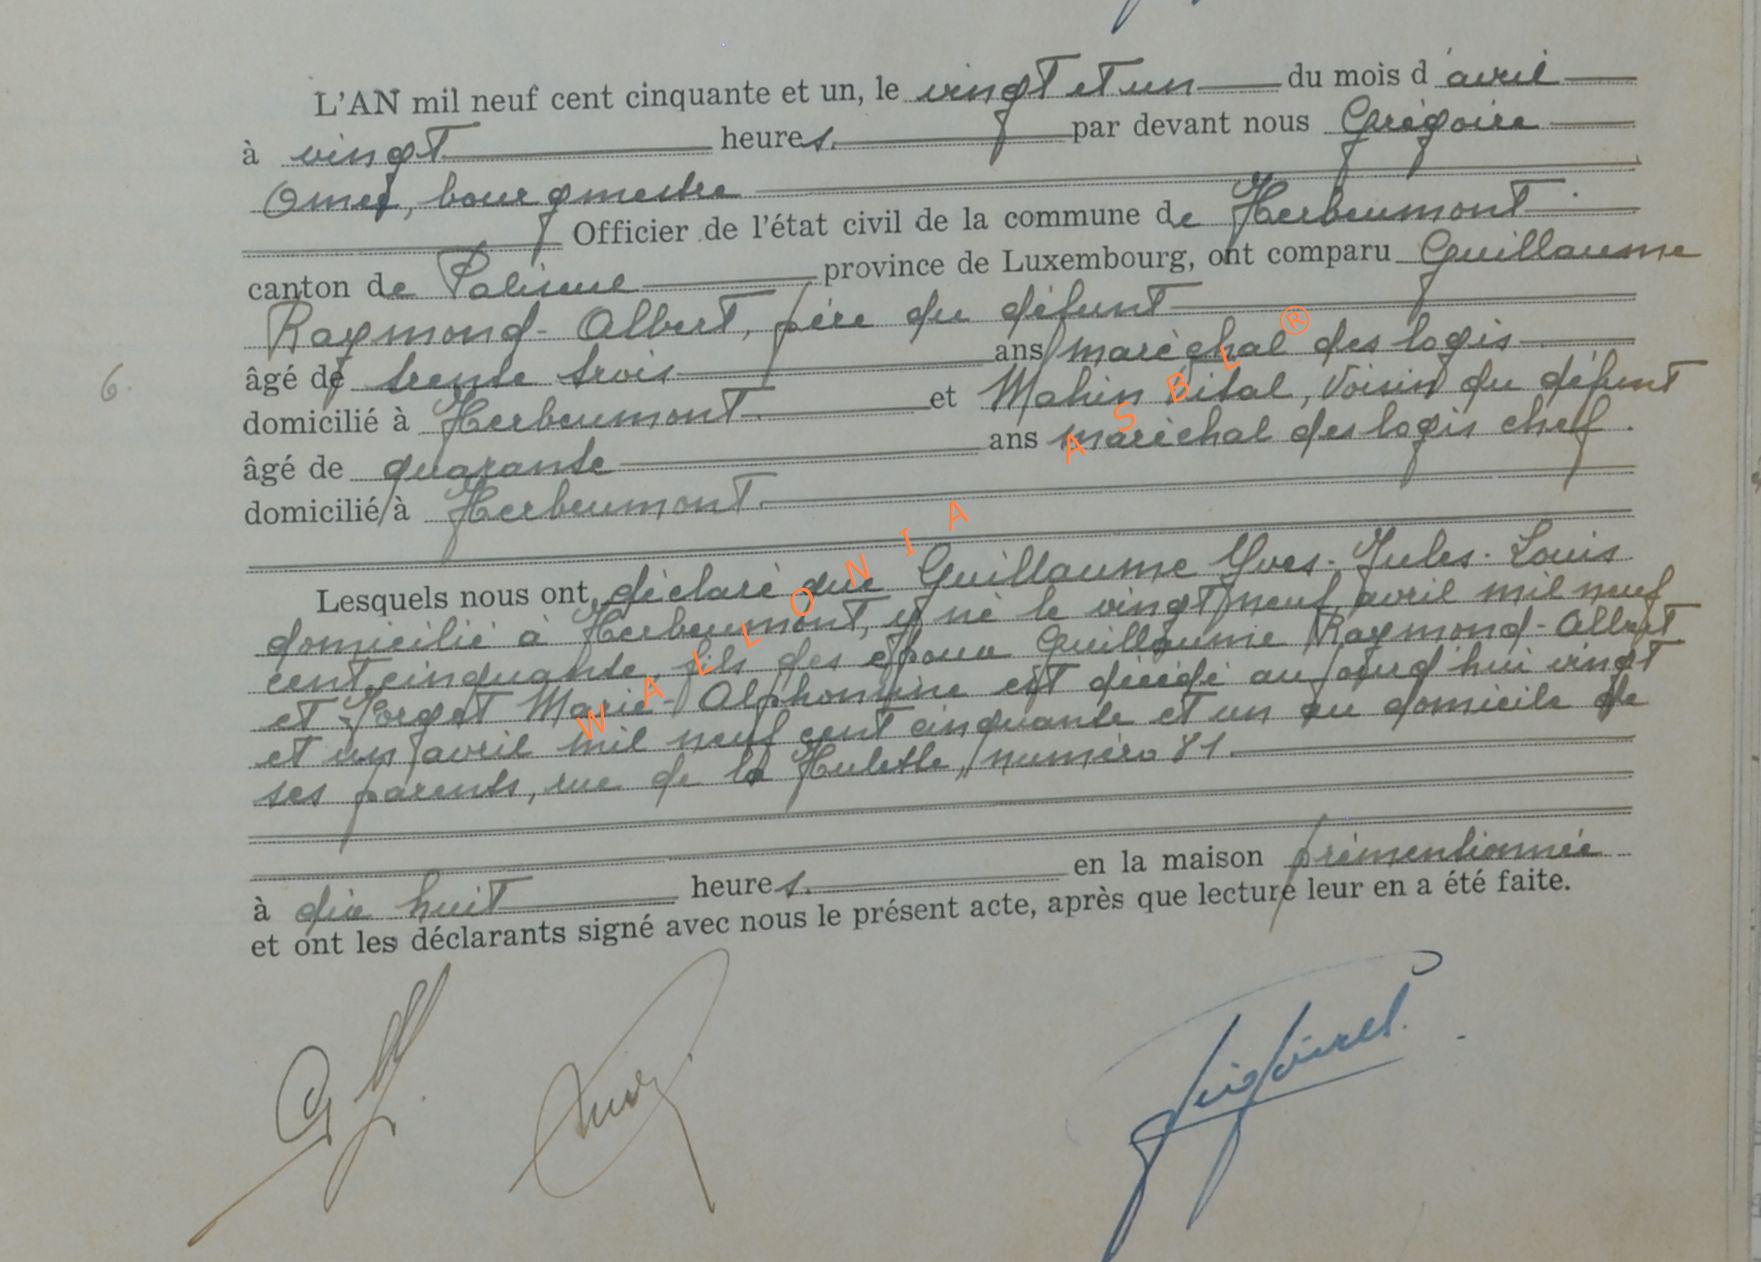 L'AN mil neuf cent cinquante et un, le vingt et un du mois d'avril
à vingt heures. par devant nous Grégoire
Omer, bourgmestre
Officier de l'état civil de la commune de Herbeumont
canton de Paliseul province de Luxembourg, ont comparu Guillaume
Raymond-Albert, père du défunt
âgé de trente trois ans maréchal des logis
6.
domicilié à Herbeumont. et Mahin Vital, voisin du défunt
âgé de quarante ans maréchal des logis chef.
domicilié à Herbeumont.
Lesquels nous ont déclaré que Guillaume Yves-Jules-Louis
domicilié à Herbeumont, y né le vingt neuf avril mil neuf
cent cinquante, fils des époux Guillaume Raymond-Albert
et Marie-Alphonsine est décédé aujourd'hui vingt
et un avril mil neuf cent cinquante et un au domicile de
ses parents, rue de la Hulette, numéro 81.
à dix huit heures. en la maison prémentionnée
et ont les déclarants signé avec nous le présent acte, après que lecture leur en a été faite.
WALLONIA ASBL®